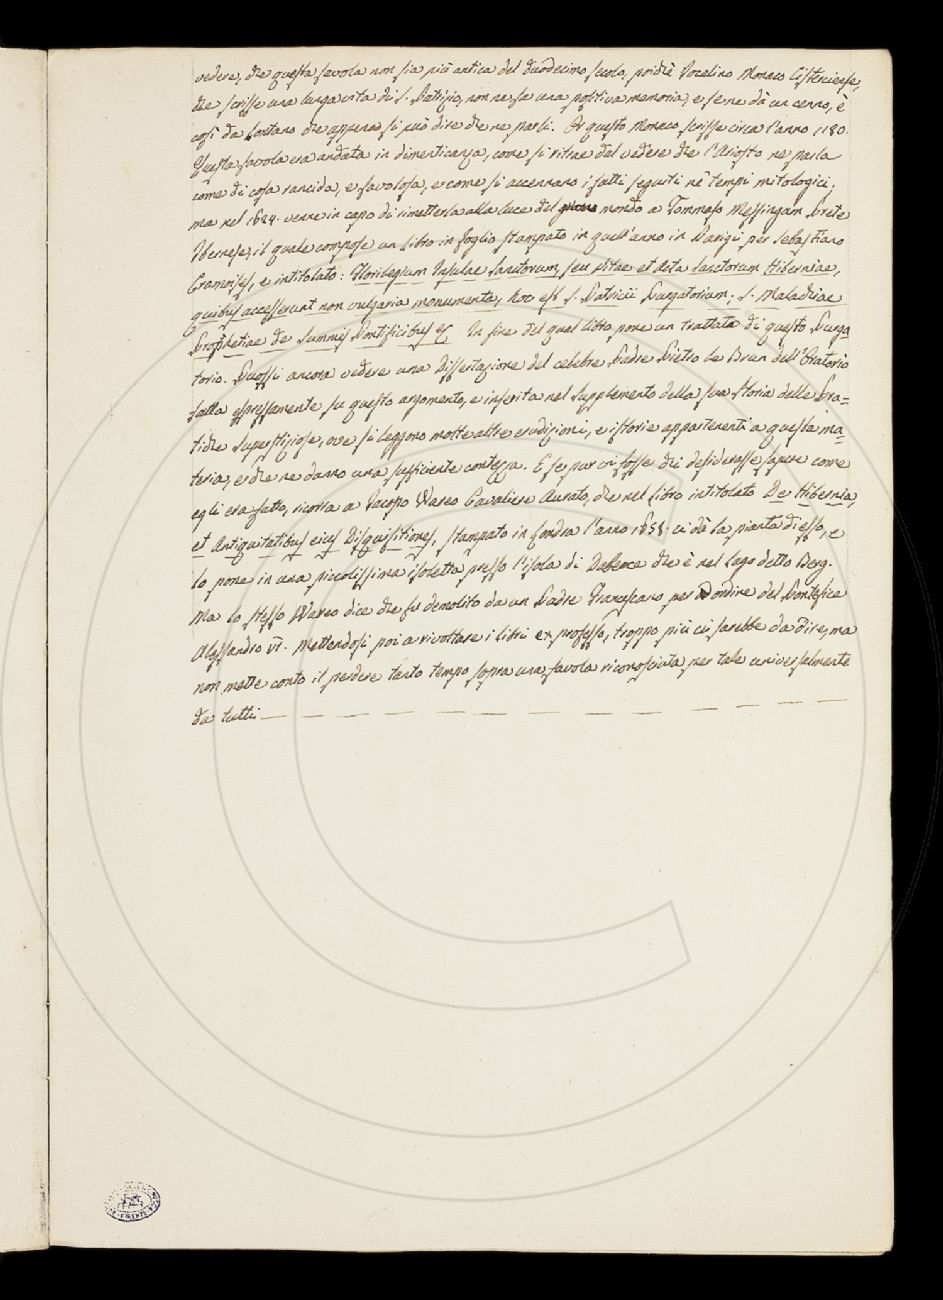 vedere, che questa favola non sia più antica del duodecimo secolo, poichè Jocelino Monaco Cisterciense,
che scrisse una lunga vita di S. Patrizio, non ne fa una positiva memoria, e se ne dà un cenno, è
così da lontano che appena si può dire che ne parli. Or questo Monaco scrisse circa l'anno 1180.
Questa favola era andata in dimenticanza, come si ritrae dal vedere che l'Ariosto ne parla
come di cosa rancida, e favolosa, e come si accennano i fatti seguiti ne' tempi mitologici;
ma nel 1624. venne in capo di rimetterla alla luce del mondo a Tommaso Messingam Prete
Ibernese, il quale compose un libro in foglio stampato in quell'anno in Parigi per Sebastiano
Cramoisy, e intitolato: Florilegium Insulae Sanctorum, seu Vitae et Acta Sanctorum Hiberniae,
quibus accesserunt non vulgaria monumenta, hoc est S. Patricii Purgatorium; S. Malachiae
Prophetiae de Summis Pontificibus &c. In fine del qual libro pone un trattato di questo Purga
torio. Puossi ancora vedere una Dissertazione del celebre Padre Pietro le Brun dell'Oratorio
fatta espressamente su questo argomento, e inserita nel Supplemento della sua Storia delle Pra=
tiche Superstiziose, ove si leggono molte altre erudizioni, e istorie appartenenti a questa ma=
teria, e che ne danno una sufficiente contezza. E se pur vi fosse chi desiderasse sapere come
egli era fatto, ricorra a Jacopo Wareo Cavaliere Aurato, che nel libro intitolato De Hibernia,
et Antiquitatibus eius Disquisitiones, stampato in Londra l'anno 1658. ci dà la pianta di esso, e
lo pone in una piccolissima isoletta presso l'isola di Dabeoce che è nel lago detto Derg.
Ma lo stesso Wareo dice che fu demolito da un Padre Francescano per ordine del Pontefice
Alessandro VI. Mettendosi poi a rivoltare i libri ex professo, troppo più ci sarebbe da dire, ma
non mette conto il perdere tanto tempo sopra una favola riconosciuta per tale universalmente
da tutti